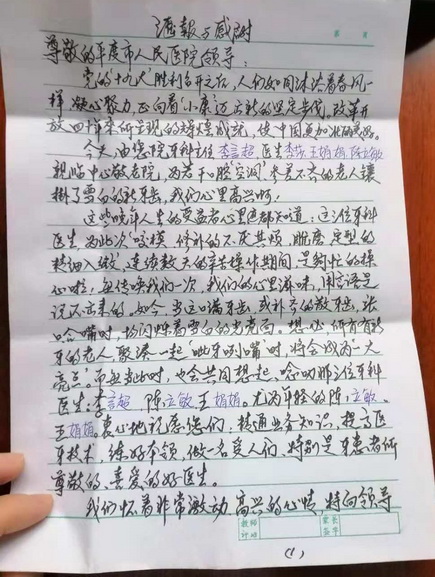 汇报与感谢
尊敬的平度市人民医院领导:
党的"十九大"胜利召开之后,人们如同沐浴着春风一
样,凝心聚力,正向着"小康"迈立新的坚定步伐。改革开
放四十年来所呈现的辉煌成就,使中国更加
今天,由您院牙科主任 李言超 医生 李莎 王娟娟 陈立敏
亲临中心敬老院,为若干口腔"空洞",参差不齐的老人镶
掛了雪白的新牙齿,我们心里高兴啊!
这些晚年人生的受益者心里边都知道:这三位牙科
医生为此次咬模、修补的不厌其烦,脱磨、定型的
精细入微,连续数天的辛苦操作期间,
心啦!每传唤我们一次,我们的心里滋味,用言语是
说不出来的,如今,当这口满牙齿,或补齐的散牙齿,张
口合嘴时,均闪烁着雪白的光亮间,想必所有有新
牙的老人聚凑一起"呲牙咧嘴"时,将会成为一大
亮点。而每当此时,也会共同想起、念叨那三位牙科
医生:李言超,陈立敏 王娟娟。尤为年轻的陈立敏、
王娟娟。衷心地祝愿您们,精通业务知识,提高医
牙技术,练好本领,做一名受人们、特别是牙患者所
尊敬的、喜爱的好医生。
我们怀着非常激动、高兴的心情,特向领导
教师
评语
家长
签字
(1)